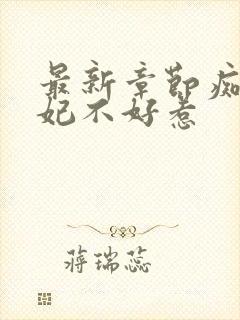 最新章節痴
妃不好惹
蔣瑞蕊